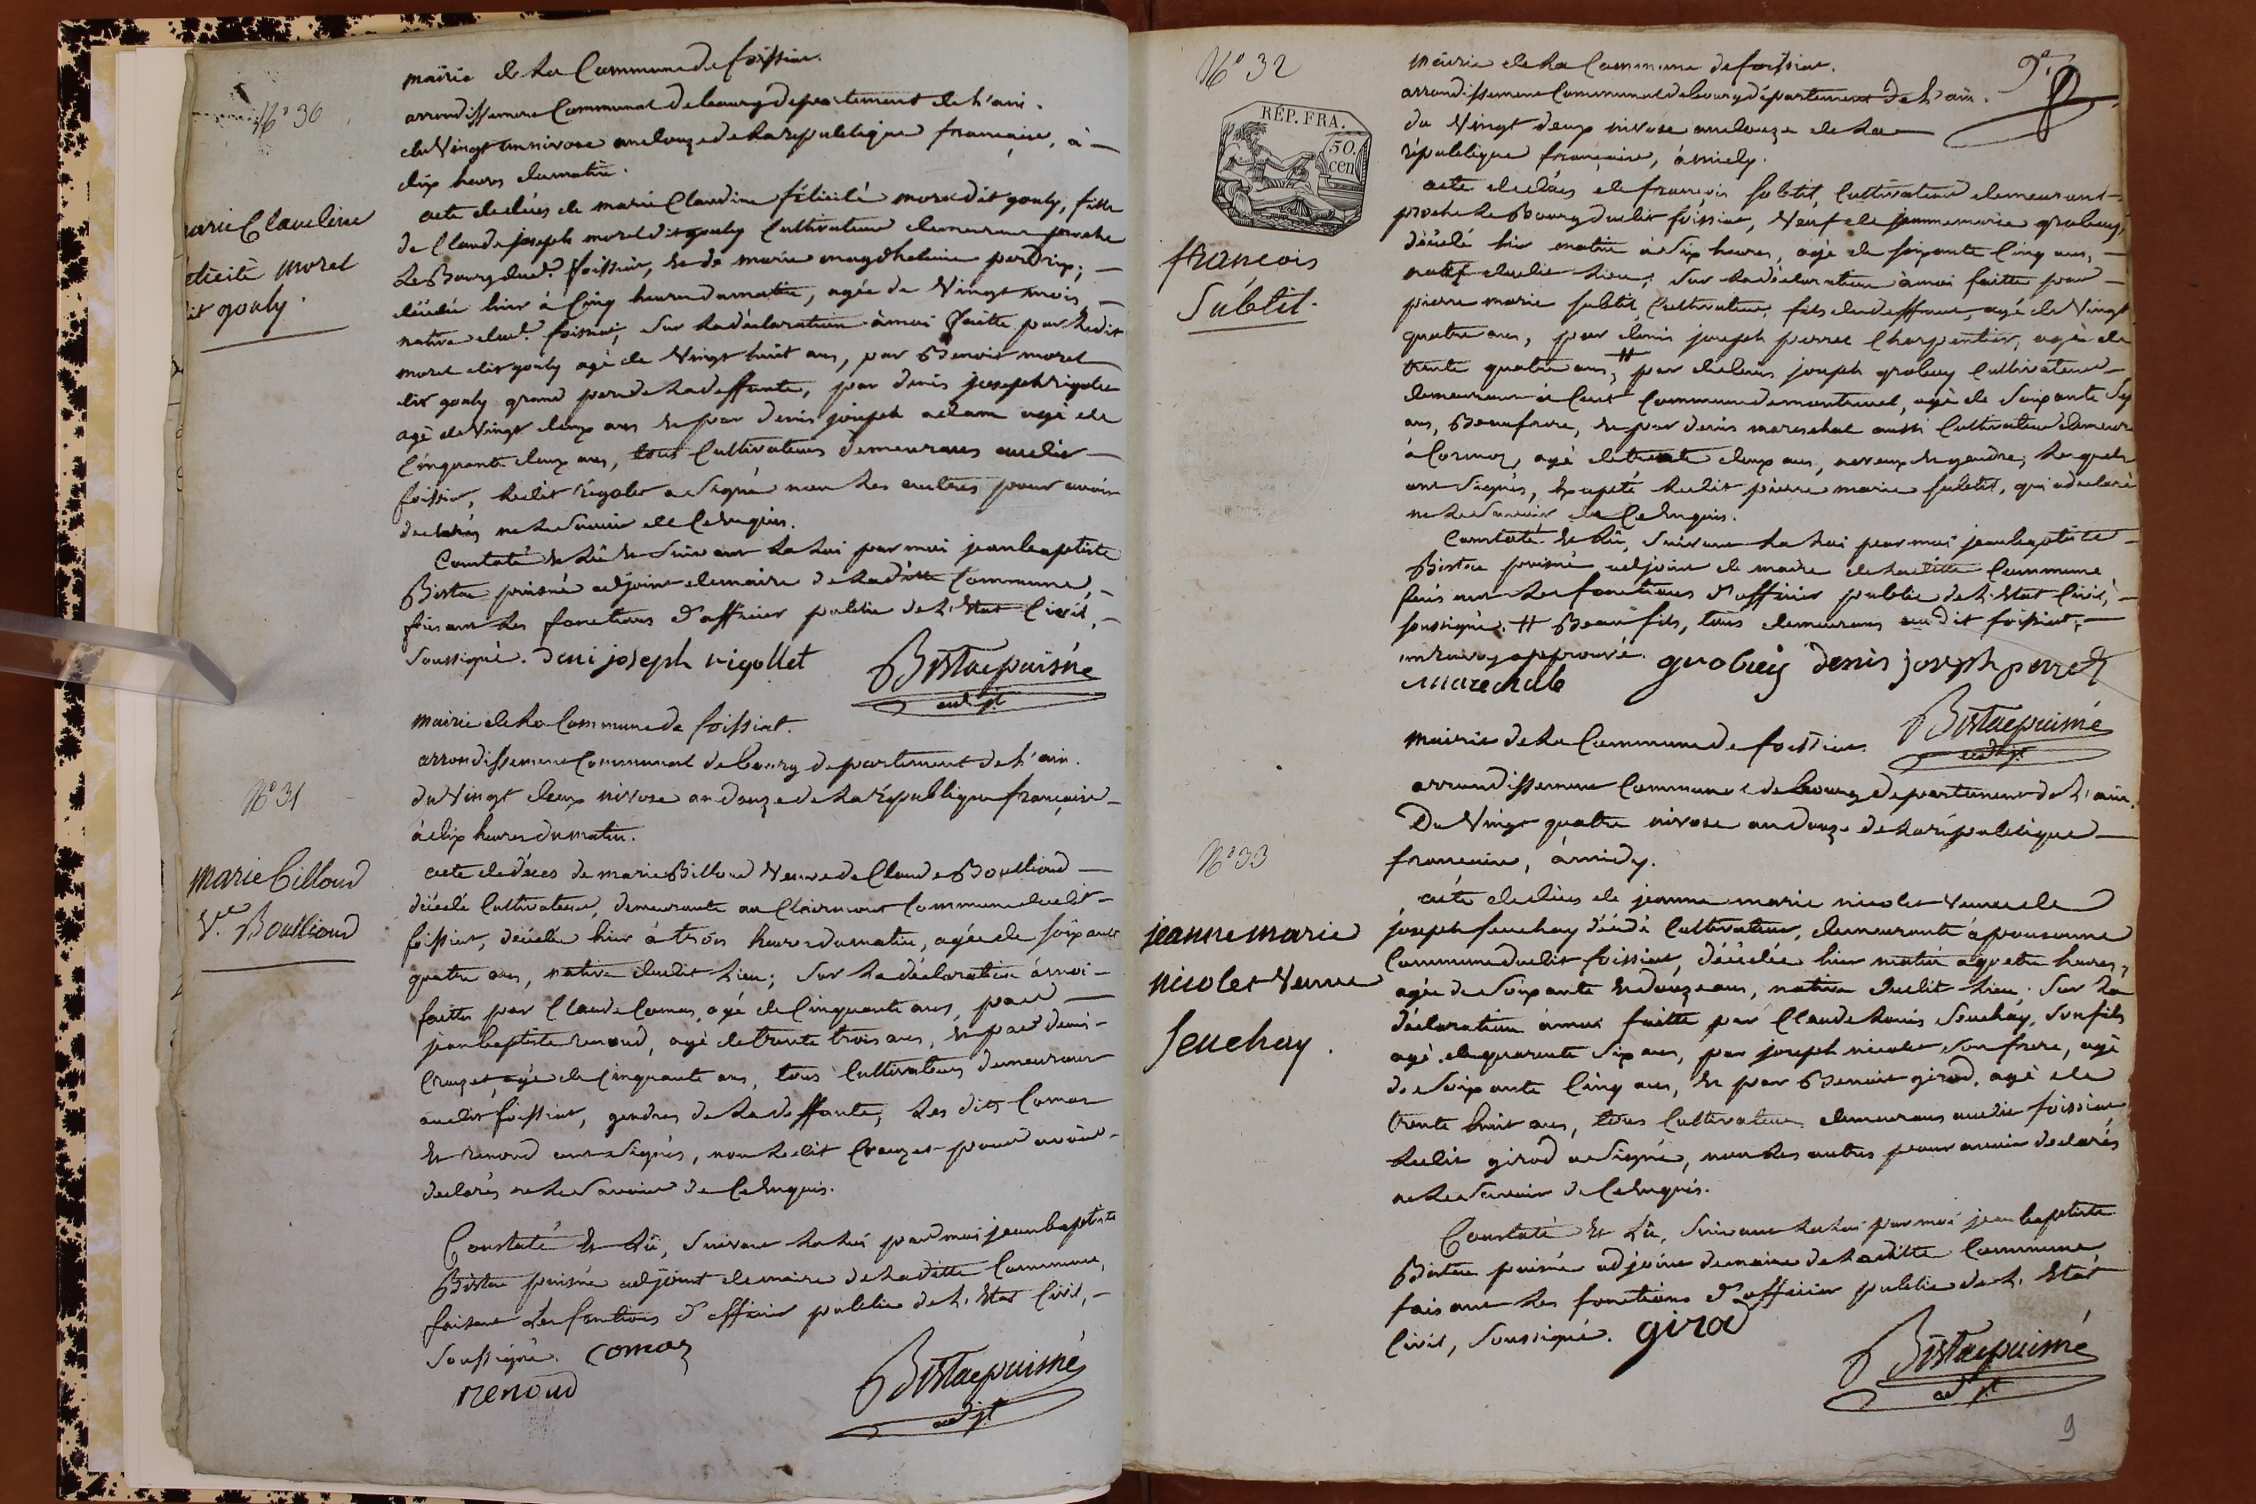 N° 30
mairie de La Commune de foissiat.
arrondissement Communal de bourg departement de L'ain.
du Vingt un nivose an douze de La république française, à
dix heures du matin.
marie Claudine
félicité morel
dit gouly.
acte de décès de marie Claudine félicité morel dit gouly, fille
de Claude joseph morel dit gouly Cultivateur demeurant proche
Le Bourg dud.t foissiat, et de marie magdheleine perdrix;
décédée hier à Cinq heures du matin, agée de Vingt mois,
native dud.t foissiat, sur La déclaration à moi faitte par Ledit
morel dit gouly agé de Vingt huit ans, par Benoit morel
dit gouly grand pere de La deffunte, par denis joseph rigolet
agé de Vingt deux ans et par denis joseph adam agé de
Cinquante deux ans, tous Cultivateurs demeurans audit
foissiat, Ledit rigolet a signé non Les autres pour avoir
declarés ne Le savoir de Ce Enquis.
Constaté et Lû et suivant La Loi par moi jean baptiste
Bistac puisné adjoint du maire de La ditte Commune,
faisant Les fonctions d'officier public de L'Etat Civil,
soussigné. Deni joseph rigollet
Bistac puisné
adj.t
N° 31
mairie de La Commune de foissiat.
arrondissement Communal de bourg departement de L'ain.
du Vingt deux nivose an douze de La république française
à dix heures du matin.
marie billoud
V.e Boullioud
acte de décès de marie Billoud Veuve de Claude Boullioud
décédé Cultivateur, demeurante au Clairmont Commune dudit
foissiat, décédée hier à trois heures du matin, agée de soixante
quatre ans, native dudit Lieu; sur La déclaration à moi
faitte par Claude Comas, agé de Cinquante ans, par
jean baptiste renoud, agé de trente trois ans, et par deni
Crozet, agé de Cinquante ans, tous Cultivateurs demeurans
audit foissiat, gendres de La deffunte, Les dits Comas
et renoud ont signés, non Ledit Crouzet pour avoir
declarés ne Le savoir de Ce Enquis.
Constaté et Lû, suivant La Loi par moi jean baptiste
Bistac puisné adjoint du maire de La ditte Commune,
faisant Les fonctions d'officier public de L'Etat Civil,
soussigné. comas
renoud
Bistac puisné
adj.t
N° 32
RÉP. FRA.
50.
cen
9.e
mairie de La Commune de foissiat.
arrondissement Communal de bourg département de L'ain.
du Vingt deux nivose an douze de La
république française, à midy.
francois
Subtil.
acte de décès de françois subtil, Cultivateur demeurant
proche Le Bourg dudit foissiat, Veuf de jeanne marie grobuy,
décédé hier matin à six heures, agé de soixante Cinq ans,
natif dudit Lieu; sur La déclaration à moi faitte par
pierre marie subtil, Cultivateur, fils du deffunt, agé de Vingt
quatre ans, par denis joseph perret Charpentier, agé de
trente quatre ans, # par denis joseph grobuy Cultivateur
demeurant à Cuet Commune de montrevel, agé de soixante Sep
ans, Beaufrere, et par denis mareschal aussi Cultivateur demeurt
à Cormoz, agé de trente deux ans, neveux et gendre; Lesquels
ont signés, Excepté Ledit pierre marie subtil, qui a declaré
ne Le savoir de Ce Enquis.
Constaté et Lû, suivant La Loi par moi jean baptiste
Bistac puisné adjoint du maire de La ditte Commune
faisant Les fonctions d'officier public de L'Etat Civil,
soussigné. # Beau fils, tous demeurans audit foissiat,
un renvoy approuvé. grobuy denis joseph perret
marechale
Bistac puisné
adj.t
N° 33
mairie de La Commune de foissiat.
arrondissement Communal de bourg departement de L'ain.
Du Vingt quatre nivose an douze de La république
française, à midy.
jeanne marie
nicolet Veuve
feuchay.
acte de décès de jeanne marie nicolet Veuve de
joseph feuchay décédé Cultivateur, demeurante à
Commune dudit foissiat, décédée hier matin à quatre heures,
agée de soixante et douze ans, native dudit Lieu. sur La
déclaration à moi faitte par Claude Louis feuchay, son fils
agé de quarante six ans, par joseph nicolet son frere, agé
de soixante Cinq ans, et par Benoit girod, agé de
trente huit ans, tous Cultivateurs demeurans audit foissiat
Ledit girod a signé, non Les autres pour avoir declarés
ne Le savoir de Ce Enquis.
Constaté et Lû, suivant La Loi par moi jean baptiste
Bistac puisné adjoint du maire de La ditte Commune,
faisant Les fonctions d'officier public de L'Etat
Civil, soussigné. girod
Bistac puisné
adj.t
9